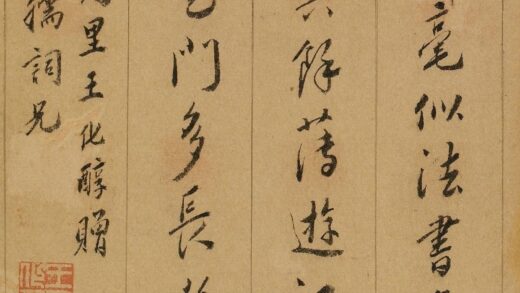 毫似法書
餘薄遊
門多長
里王化醇贈
孺詞兄